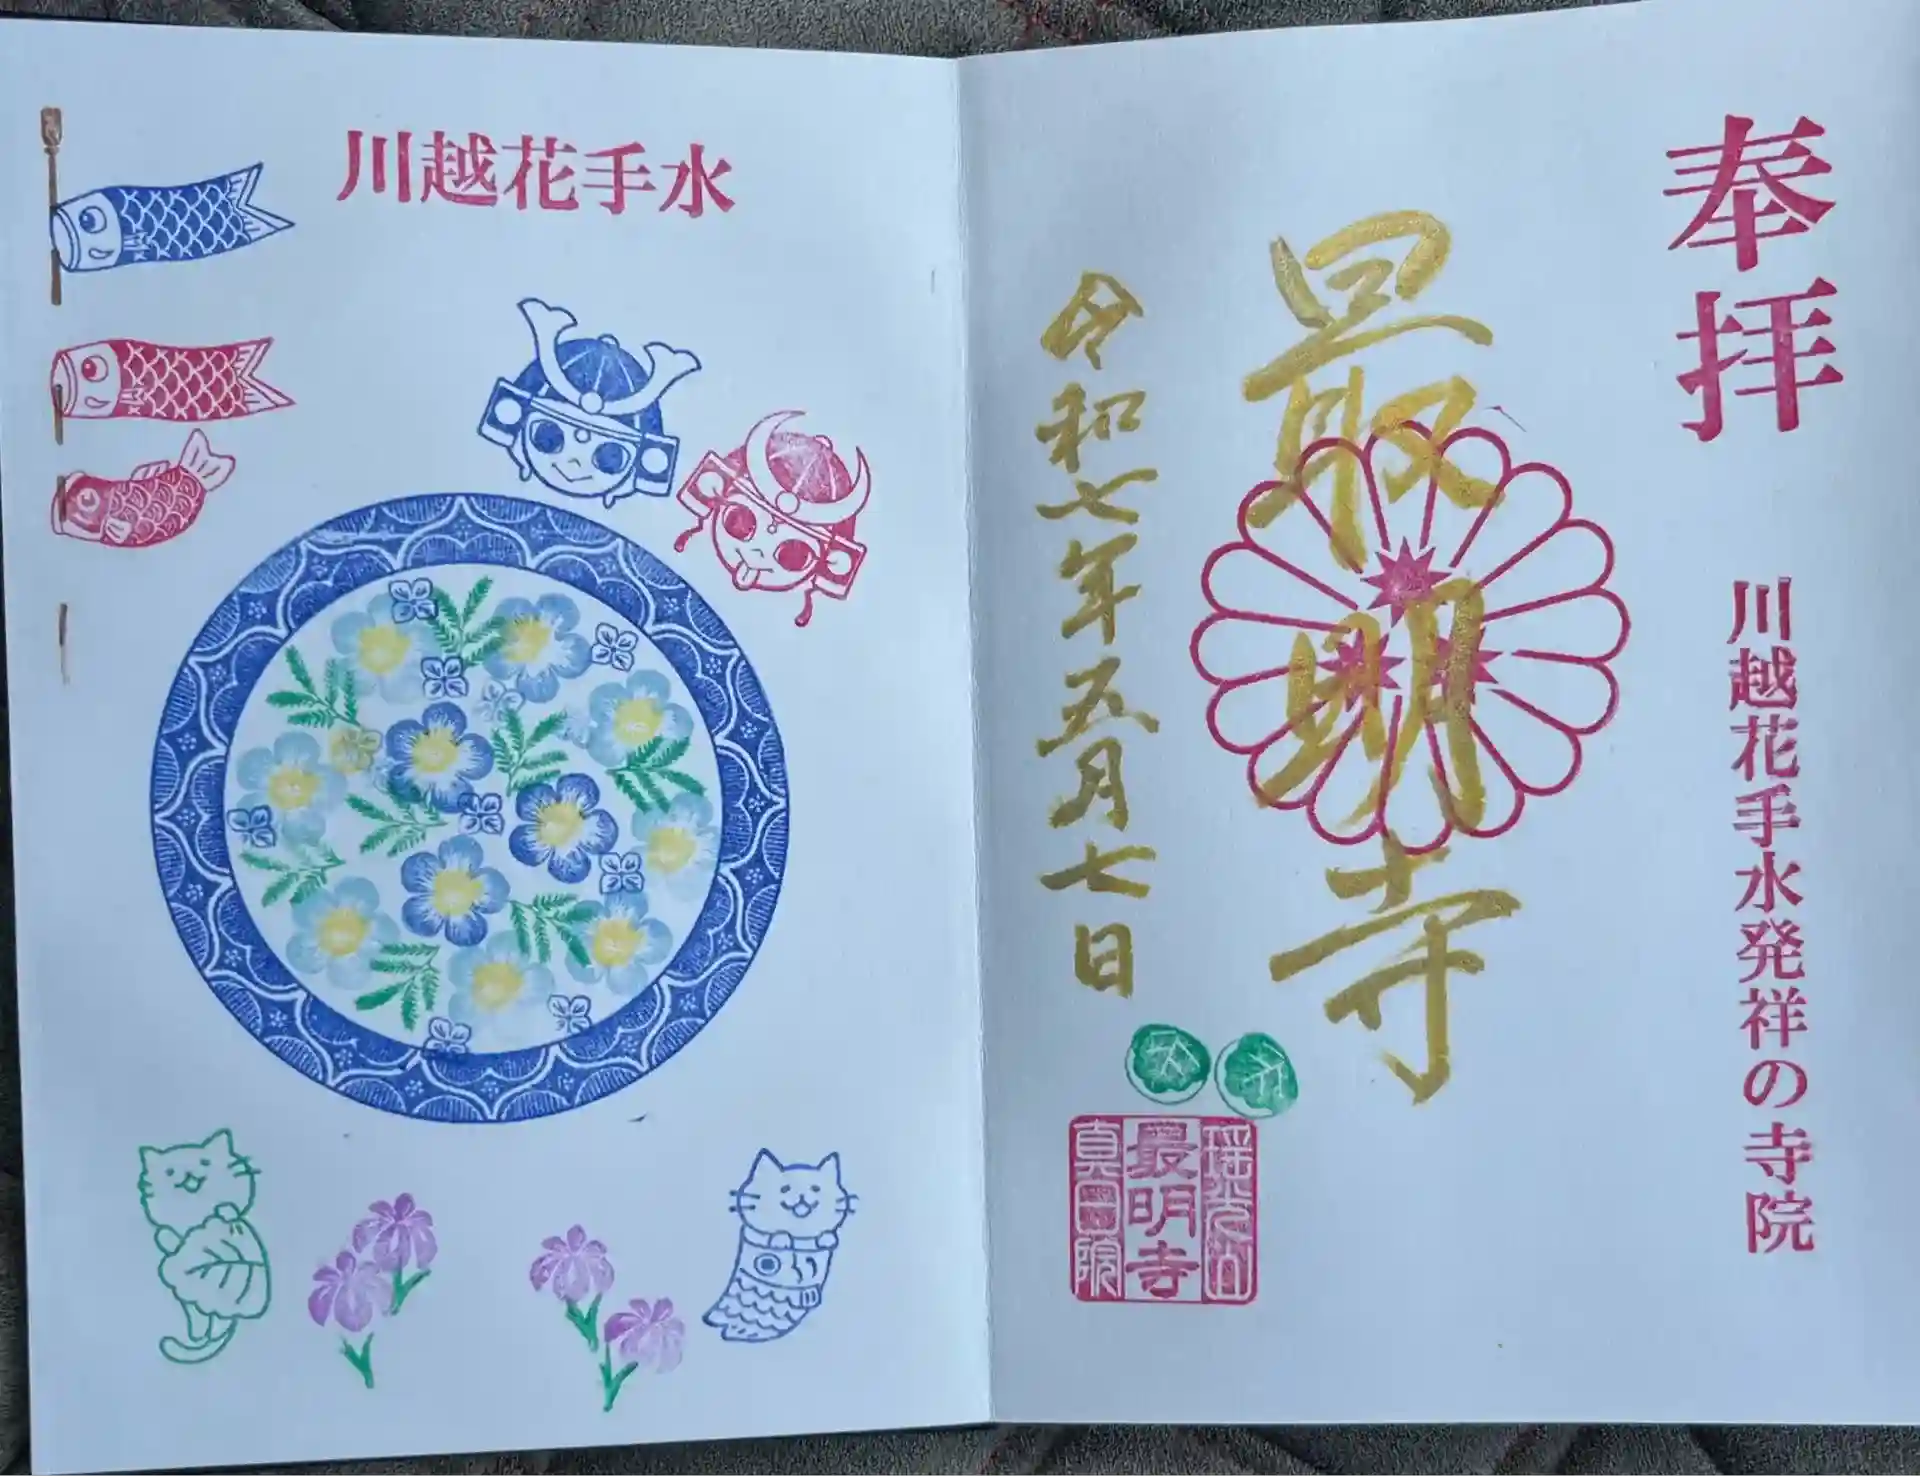 奉拝
川越花手水発祥の寺院
最明寺
令和七年五月七日
瑶光山
最明寺
真言院
川越花手水